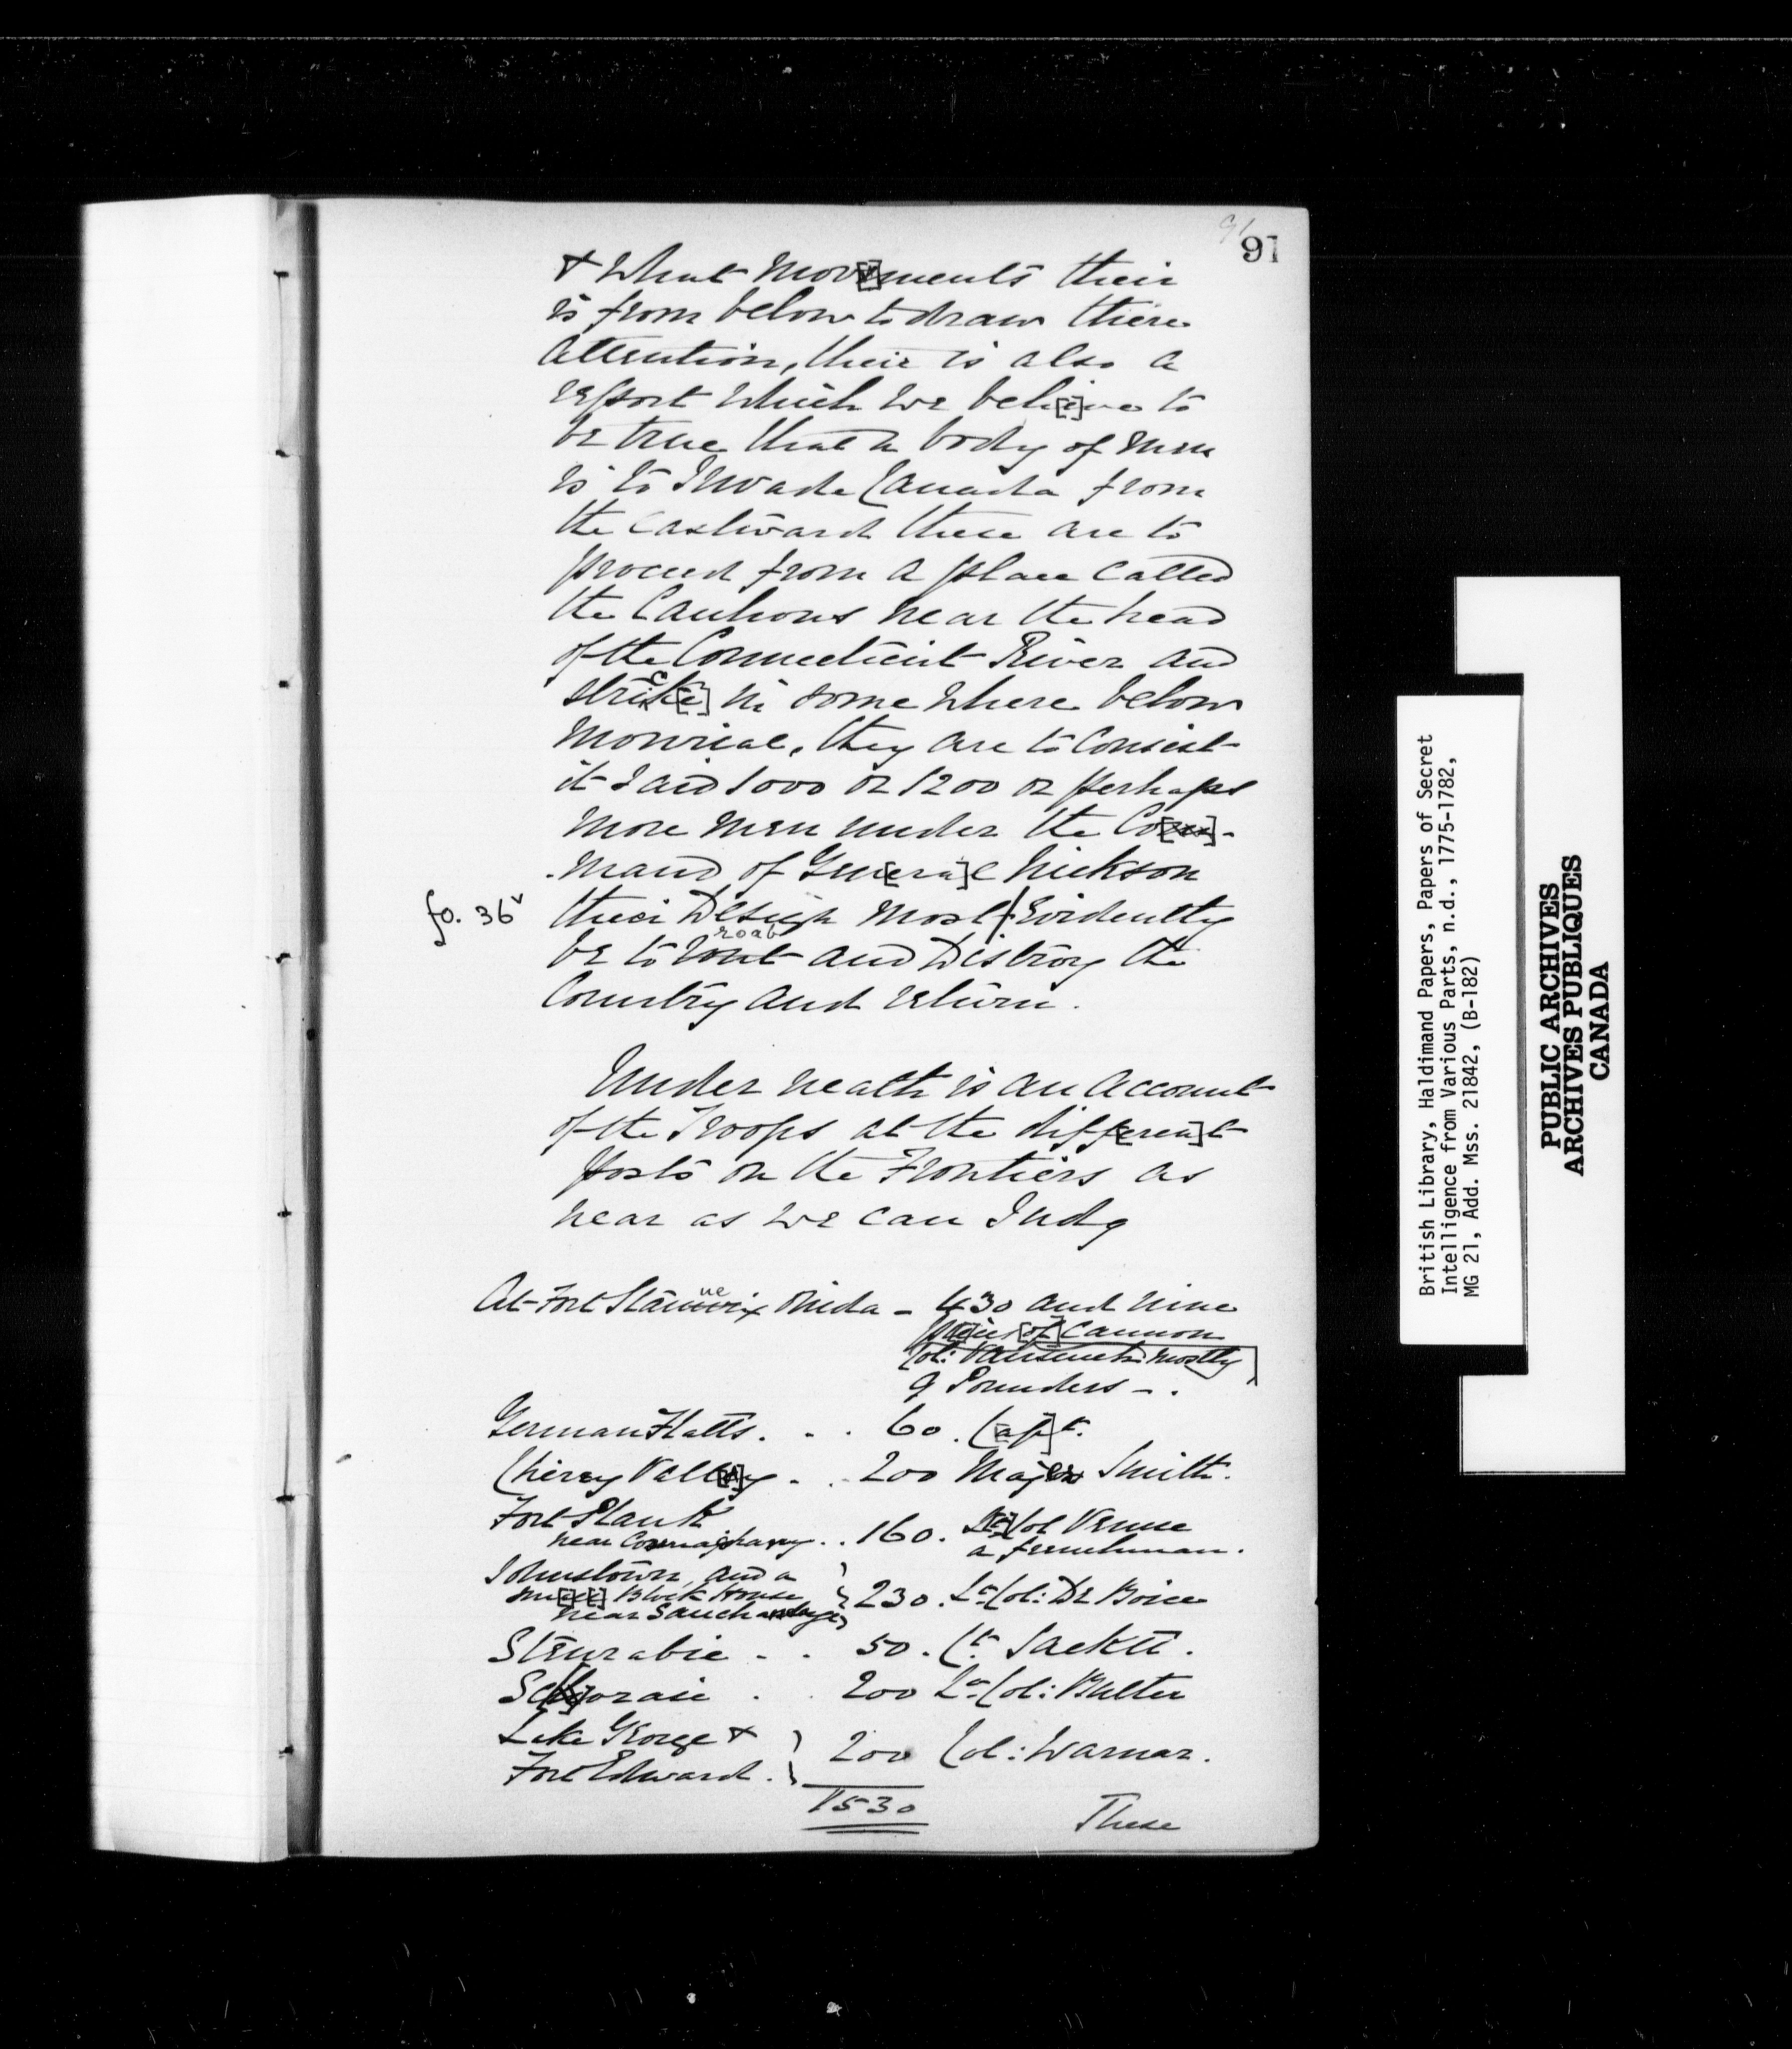 91
91
& What Movements their
is from below to draw there
Attention, their is also a
report which we believe to
be true that a body of men
is to Invade Canada from
the Eastward these are to
proceed from a place called
the Cauhows near the head
of the Connecticut River and
strike in some where below
Monrial, they are to Consist
it Said 1000 or 1200 or perhaps
more men under the Com-
-mand of General Nickson
fo. 36v their Design most Evidently
roab
be to and Distroy the
Country and return.
Under neath is an Account
of the Troops at the different
posts on the Frontiers as
near as we can Judg
At Fort Stanwix Onida - 430 and nine
pieces of Cannon
Col: mostly
9 Pounders - .
German Flatts . . . 60 . Capt.
Cherry Valley . . 200 Major Smith.
Fort Plank
near . . 160. Lt Col Venue
a frenchman.
Johnstown, and a
small Block House } 230. Lt Col: De Boice
near
Stenrabie . . 50 . Ct. Sackit.
Schoraie . . 200 Lt. Col: Butler
Lake George &
Fort Edward . } 200 Col: Warnar.
1530
These
British Library, Haldimand Papers, Papers of Secret
Intelligence from Various Parts, n.d., 1775-1782,
MG 21, Add. Mss. 21842, (B-182)
PUBLIC ARCHIVES
ARCHIVES PUBLIQUES
CANADA